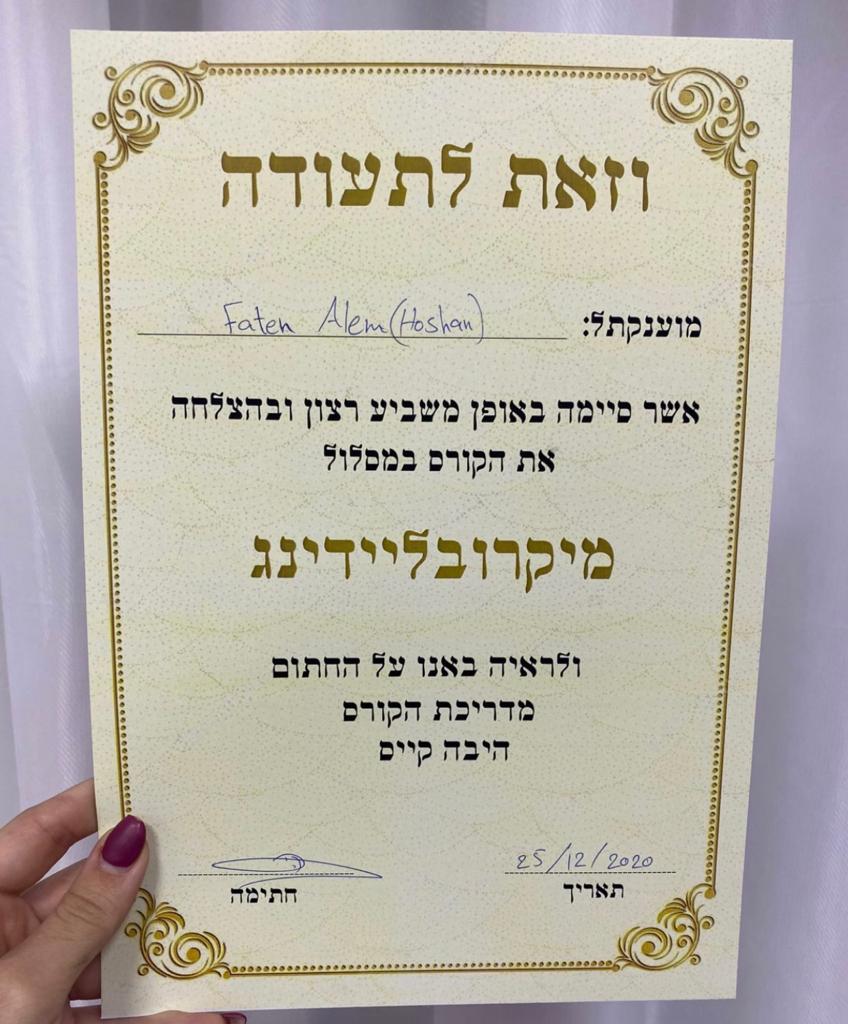 וזאת לתעודה
מוענקת ל: Faten Alem (Hoshan)
אשר סיימה באופן משביע רצון ובהצלחה
את הקורס במסלול
מיקרובליידינג
ולראיה באנו על החתום
מדריכת הקורס
היבה קייס
25/12/2020
תאריך
חתימה